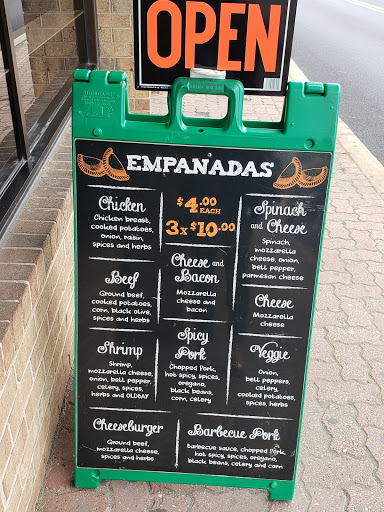 OPEN
EMPANADAS
$4.00
EACH
3x$10.00
Chicken
Chicken breast,
cooked potatoes,
onion, raisin,
spices and herbs
Beef
Ground beef,
cooked potatoes,
corn, black olive,
spices and herbs
Shrimp
Shrimp,
mozzarella cheese,
onion, bell pepper,
celery, spices,
herbs and OLDBAY
Cheese and
Bacon
Mozzarella
cheese and
bacon
Spicy
Pork
Chopped Pork,
hot spicy, spices,
oregano,
black beans,
corn, celery
Spinach
and Cheese
Spinach,
mozzarella
cheese, onion,
bell pepper,
parmesan cheese
Cheese
Mozzarella
cheese
Veggie
Onion,
bell peppers,
celery,
cooked potatoes,
spices, herbs
Cheeseburger
Ground beef,
mozzarella cheese,
spices and herbs
Barbecue Pork
Barbecue sauce, chopped Pork,
hot spicy, spices, oregano,
black beans, celery and corn